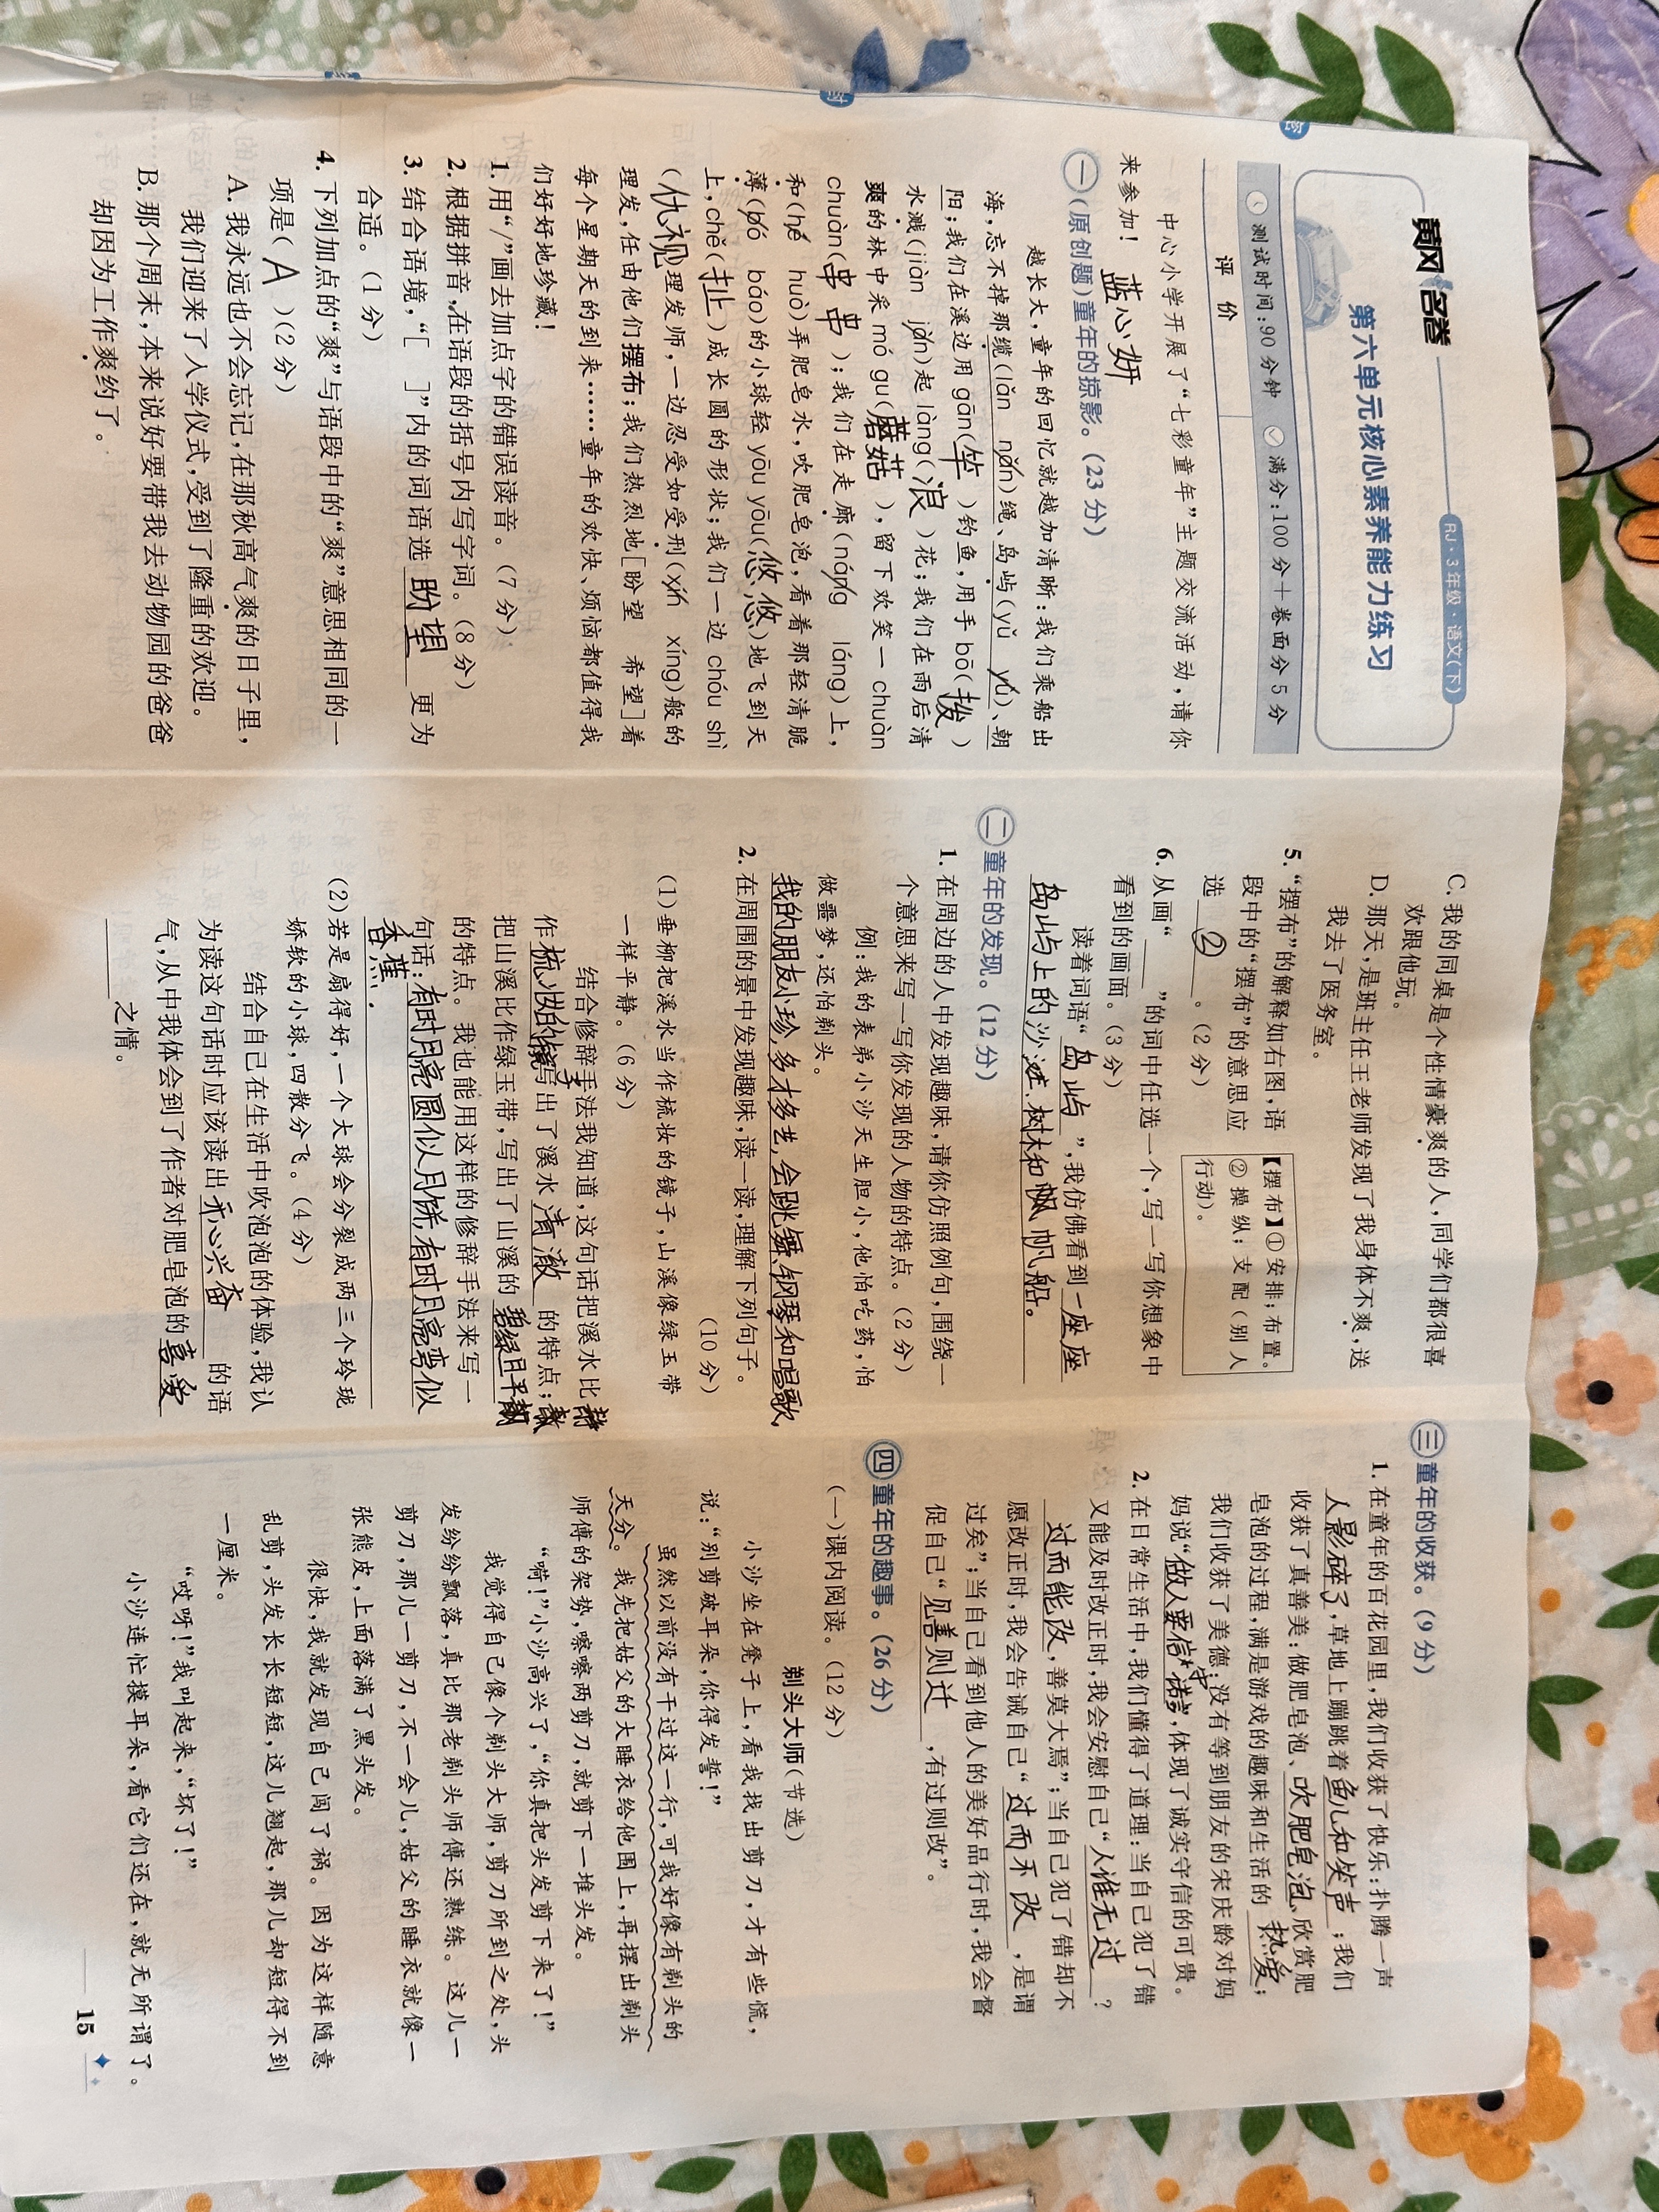 黄冈名卷
RJ·3年级·语文(下)
第六单元核心素养能力练习
测试时间:90分钟 满分:100分+卷面分5分
评 价
中心小学开展了“七彩童年”主题交流活动,请你
来参加! 蓝心妍
一(原创题)童年的掠影。(23分)
越长大,童年的回忆就越加清晰:我们乘船出
海,忘不掉那缆(lǎn nǎn)绳、岛屿(yǔ yú)、朝
阳;我们在溪边用gān(竿)钓鱼,用手bō(拨)
水溅(jiàn jàn)起làng(浪)花;我们在雨后清
爽的林中采mó gu(蘑菇),留下欢笑一chuàn
chuàn(串串);我们在走廊(náng láng)上,
和(hé huò)弄肥皂水,吹肥皂泡,看着那轻清脆
薄(bó báo)的小球轻yōu yōu(悠悠)地飞到天
上,chě(扯)成长圆的形状;我们一边chóu shì
(仇视)理发师,一边忍受如受刑(xín xíng)般的
理发,任由他们摆布;我们热烈地[盼望 希望]着
每个星期天的到来……童年的欢快、烦恼都值得我
们好好地珍藏!
1.用“/”画去加点字的错误读音。(7分)
2.根据拼音,在语段的括号内写字词。(8分)
3.结合语境,“[ ]”内的词语选 盼望 更为
合适。(1分)
4.下列加点的“爽”与语段中的“爽”意思相同的一
项是( A )(2分)
A.我永远也不会忘记,在那秋高气爽的日子里,
我们迎来了入学仪式,受到了隆重的欢迎。
B.那个周末,本来说好要带我去动物园的爸爸
却因为工作爽约了。
C.我的同桌是个性情豪爽的人,同学们都很喜
欢跟他玩。
D.那天,是班主任王老师发现了我身体不爽,送
我去了医务室。
5.“摆布”的解释如右图,语
段中的“摆布”的意思应
选 ② 。(2分)
【摆布】①安排;布置。
②操纵;支配(别人
行动)。
6.从画“____”的词中任选一个,写一写你想象中
看到的画面。(3分)
读着词语“岛屿”,我仿佛看到一座座
岛屿上的沙滩、树木和帆船。
二童年的发现。(12分)
1.在周边的人中发现趣味,请你仿照例句,围绕一
个意思来写一写你发现的人物的特点。(2分)
例:我的表弟小沙天生胆小,他怕吃药,怕
做噩梦,还怕剃头。
我的朋友小珍,多才多艺,会跳舞、钢琴和唱歌,
2.在周围的景中发现趣味,读一读,理解下列句子。
(10分)
(1)垂柳把溪水当作梳妆的镜子,山溪像绿玉带
一样平静。(6分)
结合修辞手法我知道,这句话把溪水比
作梳妆的镜子,写出了溪水 清澈 的特点;
把山溪比作绿玉带,写出了山溪的 碧绿且平静
的特点。我也能用这样的修辞手法来写一
句话:有时月亮圆似月饼,有时月亮弯似
香蕉.
(2)若是扇得好,一个大球会分裂成两三个玲珑
娇软的小球,四散分飞。(4分)
结合自己在生活中吹泡泡的体验,我认
为读这句话时应该读出 开心兴奋 的语
气,从中我体会到了作者对肥皂泡的喜爱
之情。
三童年的收获。(9分)
1.在童年的百花园里,我们收获了快乐:扑腾一声
人影碎了,草地上蹦跳着鱼儿和笑声;我们
收获了真善美:做肥皂泡、吹肥皂泡、欣赏肥
皂泡的过程,满是游戏的趣味和生活的 热爱;
我们收获了美德:没有等到朋友的宋庆龄对妈
妈说“做人要信守诺言”,体现了诚实守信的可贵。
2.在日常生活中,我们懂得了道理:当自己犯了错
又能及时改正时,我会安慰自己“人谁无过?
过而能改,善莫大焉”;当自己犯了错却不
愿改正时,我会告诫自己“过而不改,是谓
过矣”;当自己看到他人的美好品行时,我会督
促自己“见善则迁,有过则改”。
四童年的趣事。(26分)
(一)课内阅读。(12分)
剃头大师(节选)
小沙坐在凳子上,看我找出剪刀,才有些慌,
说:“别剪破耳朵,你得发誓!”
虽然以前没有干过这一行,可我好像有剃头的
天分。我先把姑父的大睡衣给他围上,再摆出剃头
师傅的架势,嚓嚓两剪刀,就剪下一堆头发。
“嗬!”小沙高兴了,“你真把头发剪下来了!”
我觉得自己像个剃头大师,剪刀所到之处,头
发纷纷飘落,真比那老剃头师傅还熟练。这儿一
剪刀,那儿一剪刀,不一会儿,姑父的睡衣就像一
张熊皮,上面落满了黑头发。
很快,我就发现自己闯了祸。因为这样随意
乱剪,头发长长短短,这儿翘起,那儿却短得不到
一厘米。
“哎呀!”我叫起来,“坏了!”
小沙连忙摸耳朵,看它们还在,就无所谓了。
15